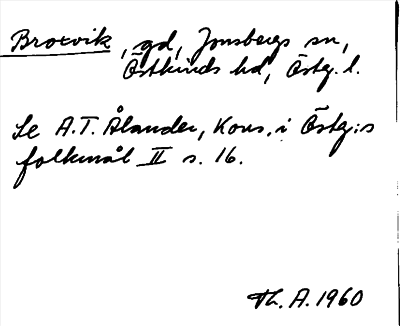 Broxvik, gd, Jonsbergs sn,
Östkinds hd, Östg. l.
Se A.T. Ålander, Kons. i Östg:s
folkmål II s. 16.
Th. A. 1960